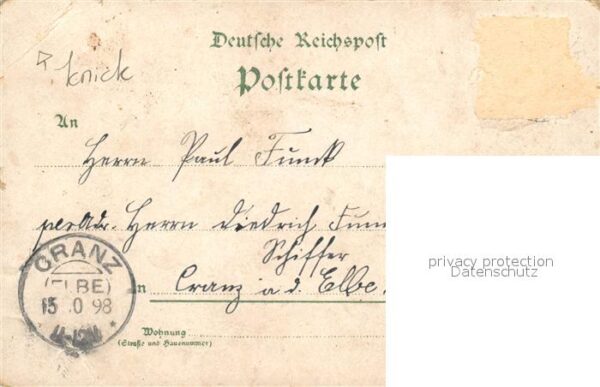 Deutsche Reichspost
Postkarte
knick
An
Herrn Paul Funck
per Adr. Herrn Diedrich
Schiffer
in Cranz a d. Elbe.
CRANZ
(ELBE)
15 .0 98
11-12N
Wohnung
(Straße und Hausnummer)
privacy protection
Datenschutz